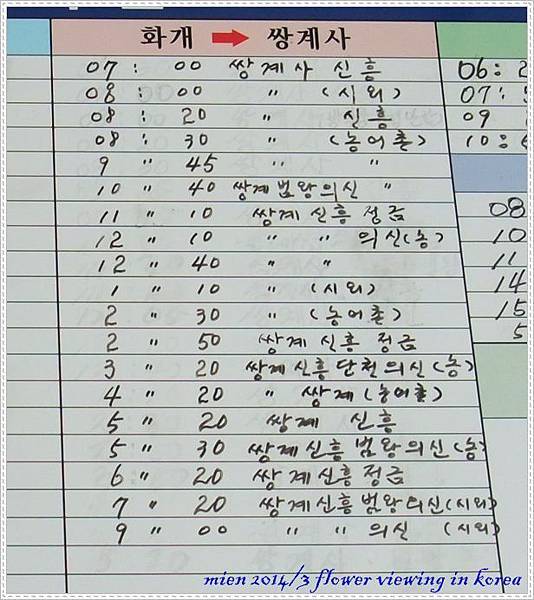 화개 → 쌍계사
07 : 00 쌍계사 신흥
08 : 00 〃 (시외)
08 : 20 〃 신흥
08 : 30 〃 (농어촌)
9 〃 45 〃 〃
10 〃 40 쌍계범왕의신 〃
11 〃 10 쌍계 신흥 정금
12 〃 10 〃 〃 의신(농)
12 〃 40 〃 〃
1 〃 10 〃 (시외)
2 〃 30 〃 (농어촌)
2 〃 50 쌍계 신흥 정금
3 〃 20 쌍계신흥단천의신(농)
4 〃 20 〃 쌍계(농어촌)
5 〃 20 쌍계 신흥
5 〃 30 쌍계신흥 범왕의신(농)
6 〃 20 쌍계신흥정금
7 〃 20 쌍계신흥범왕의신(시외)
9 〃 00 〃 〃 의신 (시외)
06:
07:
09
10:
08
10
11
14
15
5
mien 2014/3 flower viewing in korea